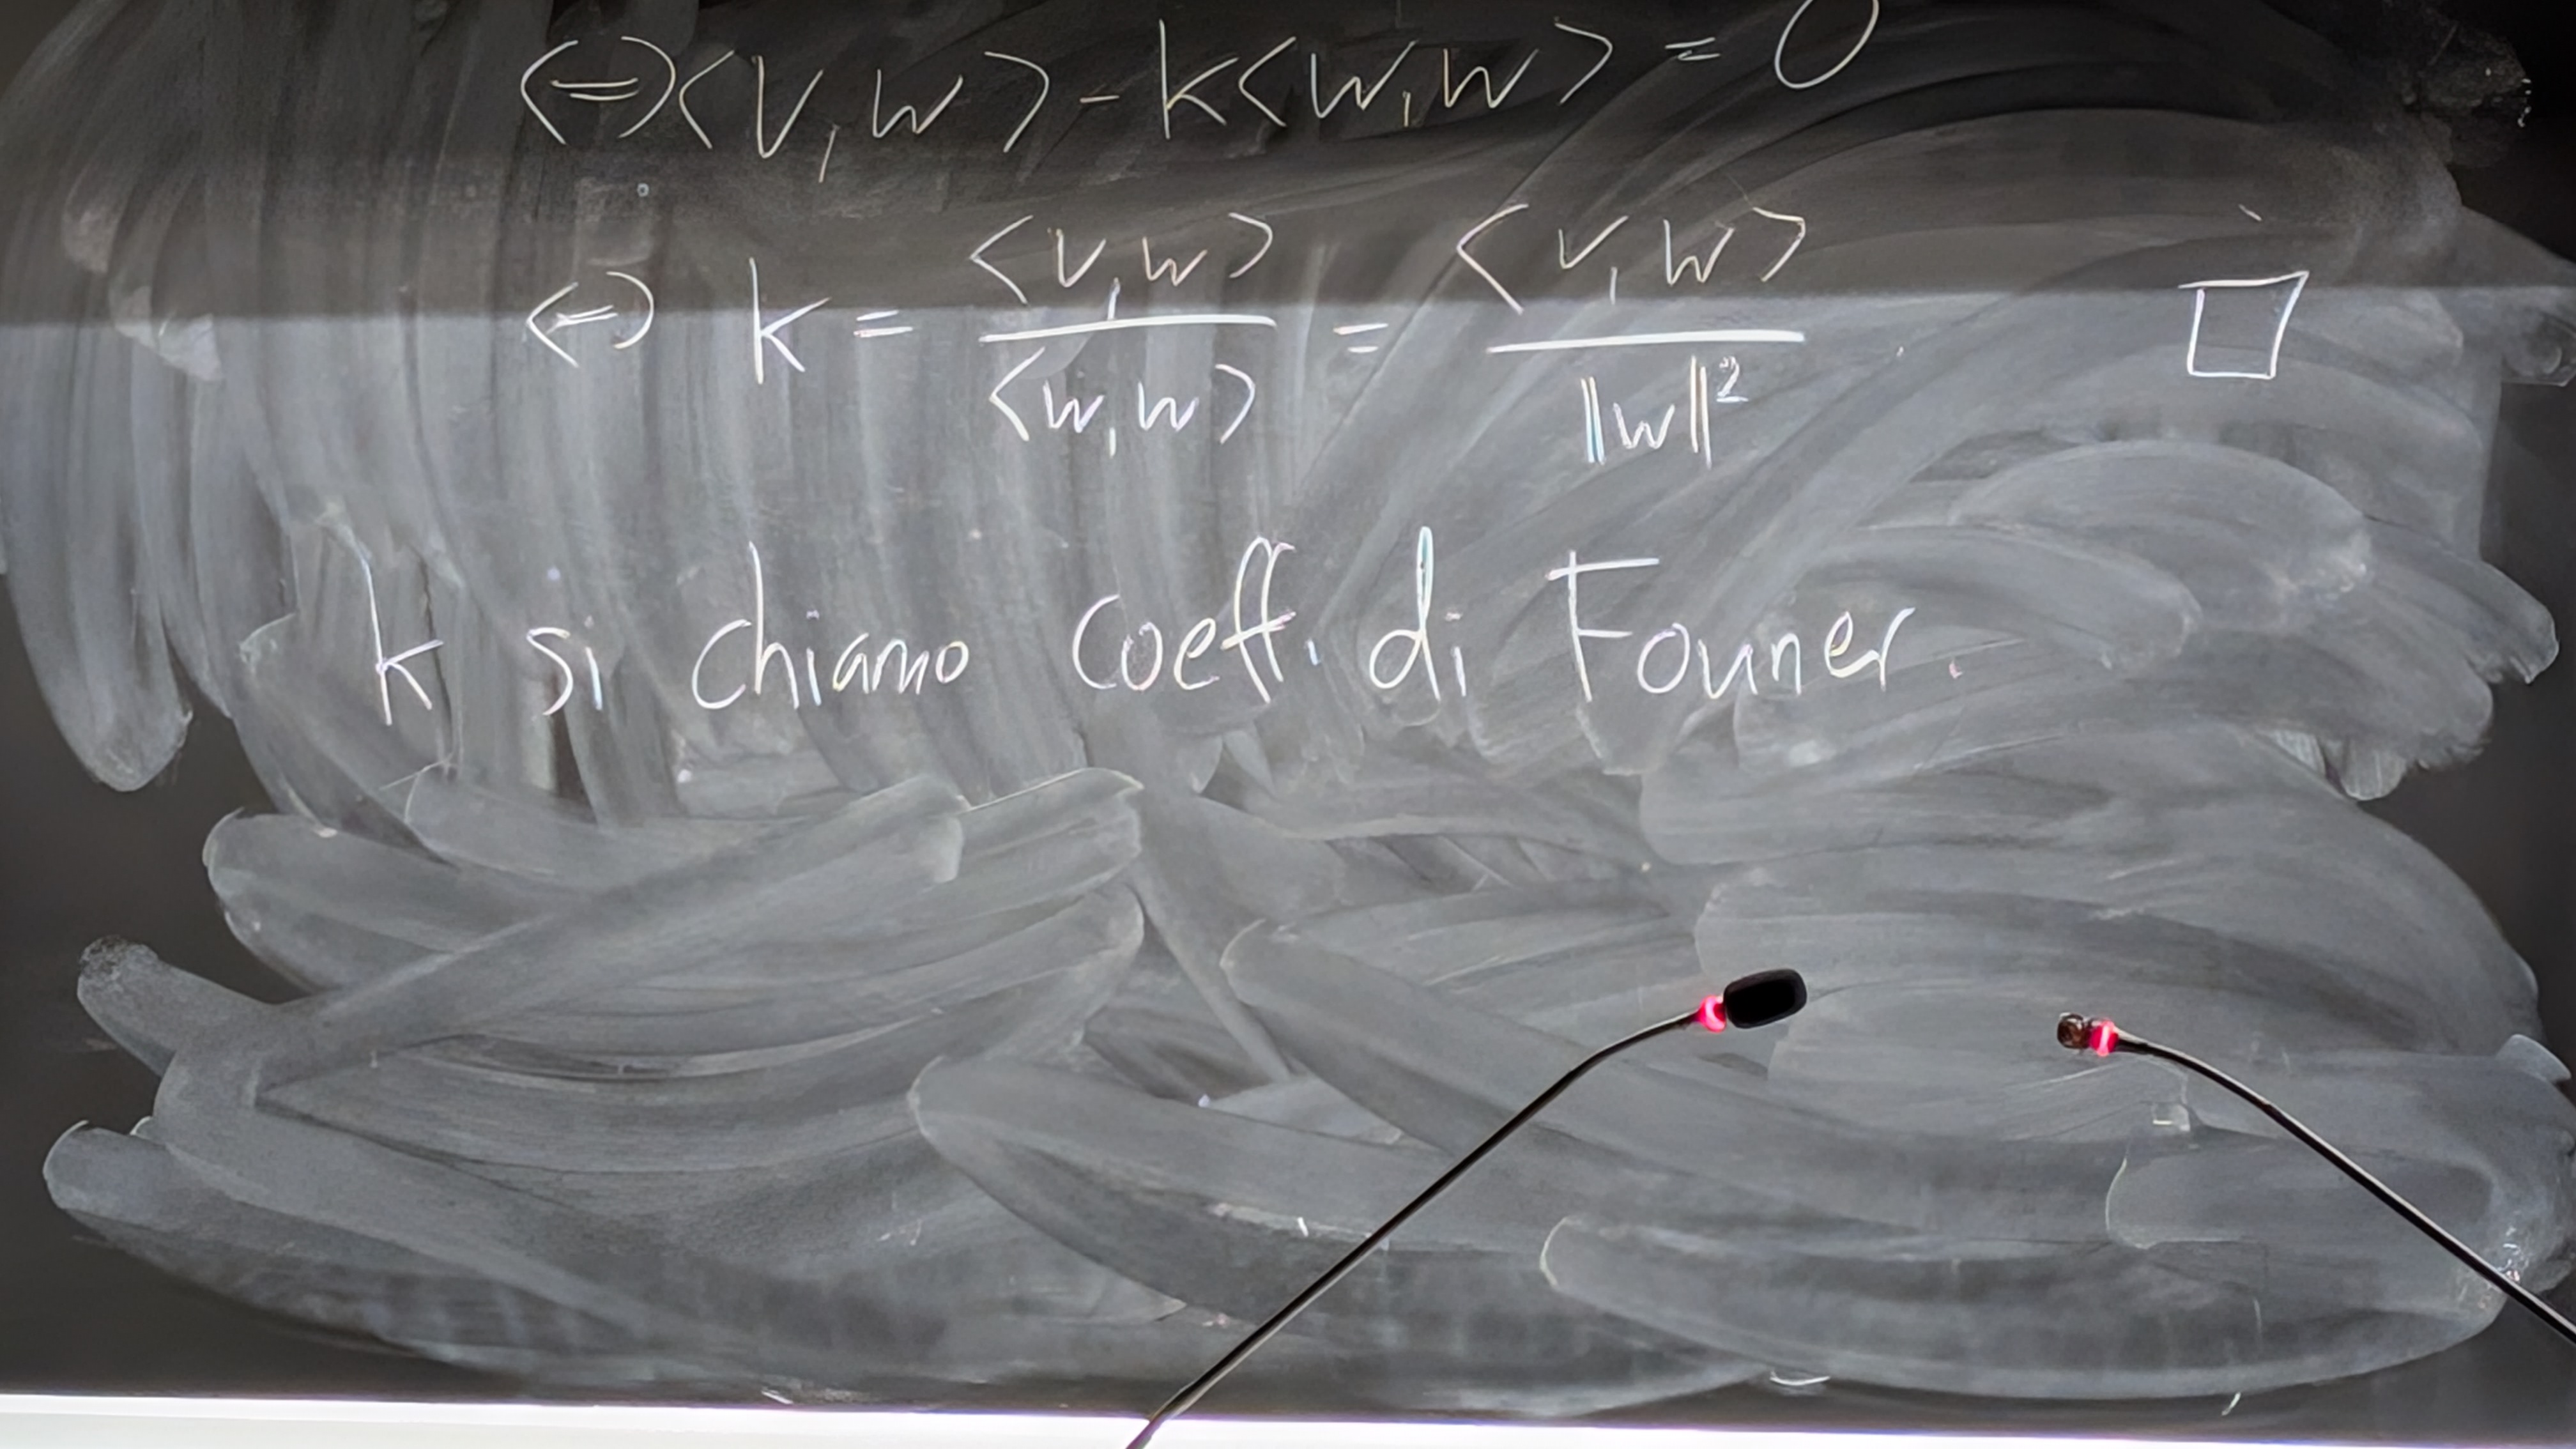 ⇔ <v,w> - k<w,w> = 0
⇔ k = <v,w> / <w,w> = <v,w> / ||w||² . □
k si chiamo coeff. di Fourier.